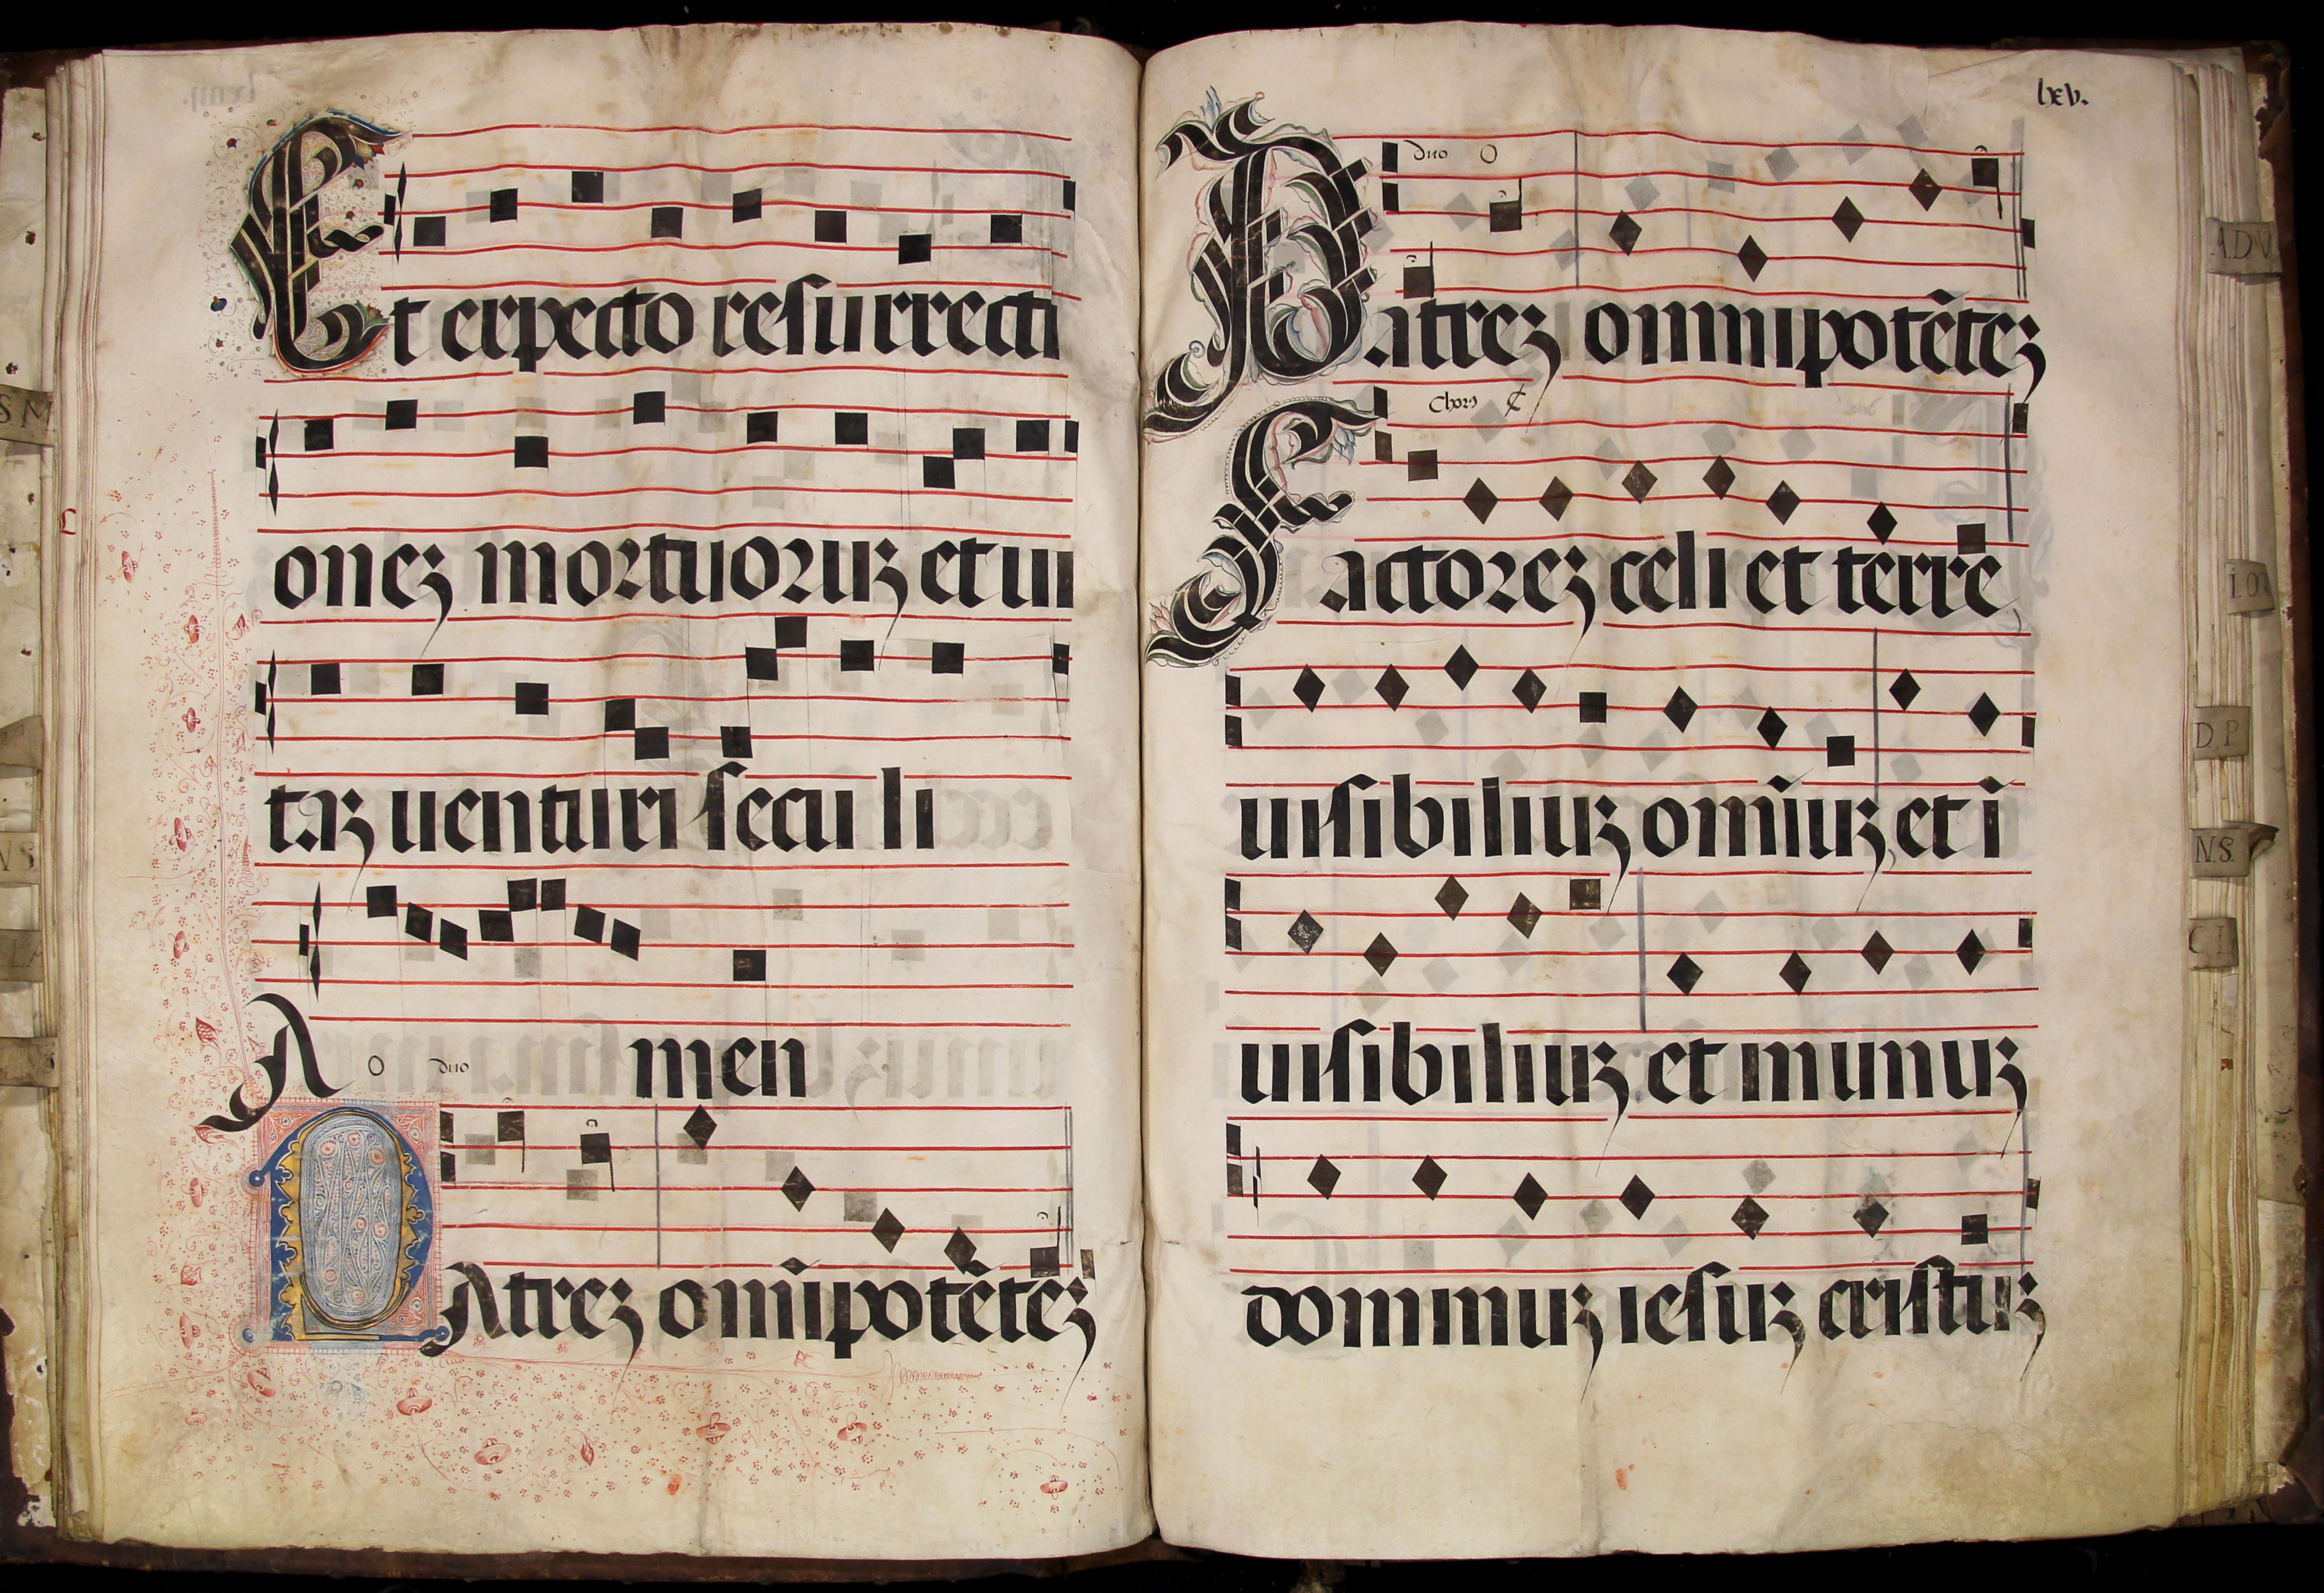 Et expecto resurrecti
onez mortuoruz et ui
taz uenturi seculi
Amen
O duo
PAtrez om̄ipotētez
lxv.
duo O
Patrez omnipotētez
Chorꝰ ¢
Factorez celi et terre
uisibiliuz om̄iuz et ī
uisibiliuz et in unuz
dominuz iesuz cristuz
S M
N S
A.D.V.
I.O.
D.P.
N.S.
C.I.